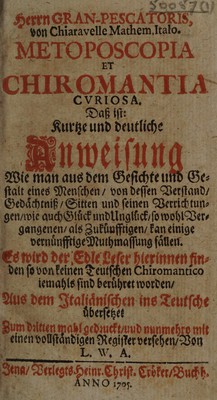 50087(1)
Herrn GRAN-PESCATORIS,
von Chiaravelle Mathem. Italo.
METOPOSCOPIA
ET
CHIROMANTIA
CVRIOSA.
Daß ist:
Kurtze und deutliche
Anweisung
Wie man aus dem Gesichte und Ge-
stalt eines Menschen/ von dessen Verstand/
Gedächtniß/ Sitten und seinen Verrichtun-
gen/ wie auch Glück und Unglück/ so wohl Ver-
gangenen/ als Zukünfftigen/ kan einige
vernünfftige Muthmassung fällen.
Es wird der Edle Leser hierinnen fin-
den so von keinen Teutschen Chiromantico
iemahls sind berühret worden/
Aus dem Italiänischen ins Teutsche
übersetzet
Zum dritten mahl gedruckt/ und nunmehro mit
einen vollständigen Register versehen/ Von
L. W. A.
Jena/ Verlegts Heinr. Christ. Cröker/ Buchh.
ANNO 1705.